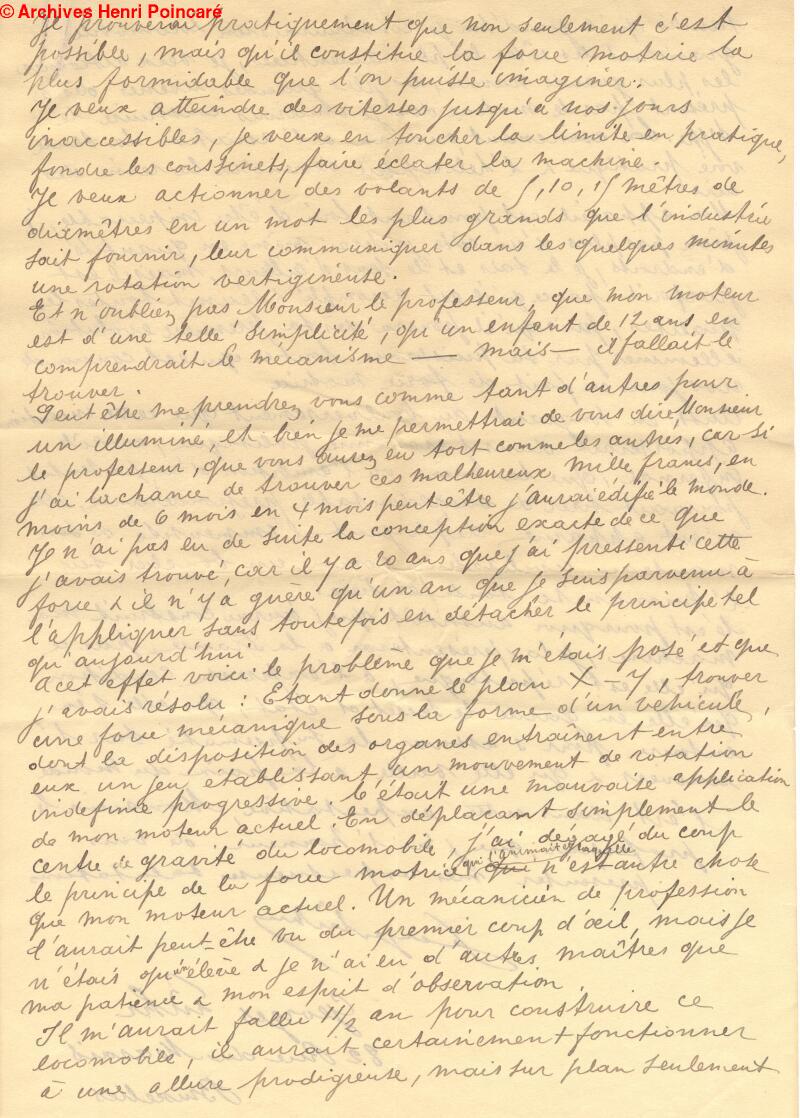 © Archives Henri Poincaré
Je prouverai pratiquement que non seulement c'est
possible, mais qu'il constitue la force motrice la
plus formidable que l'on puisse imaginer.
Je veux atteindre des vitesses jusqu'à nos jours
inaccessibles, je veux en toucher la limite en pratique,
fondre les coussinets, faire éclater la machine.
Je veux actionner des volants de 5, 10, 15 mètres de
diamètres en un mot les plus grands que l'industrie
sait fournir, leur communiquer dans les quelques minutes
une rotation vertigineuse.
Et n'oubliez pas Monsieur le professeur, que mon moteur
est d'une telle simplicité, qu'un enfant de 12 ans en
comprendrait le mécanisme — mais — il fallait le
trouver.
Peut être me prendrez vous comme tant d'autres pour
un illuminé, et bien je me permettrai de vous dire Monsieur
le professeur, que vous aurez eu tort comme les autres, car si
j'ai la chance de trouver ces malheureux mille francs, en
moins de 6 mois en 4 mois peut être j'aurai édifié le monde.
Je n'ai pas eu de suite la conception exacte de ce que
j'avais trouvé, car il y a 20 ans que j'ai pressenti cette
force & il n'y a guère qu'un an que je suis parvenu à
l'appliquer sans toutefois en détacher le principe tel
qu'aujourd'hui
A cet effet voici le problème que je m'étais posé et que
j'avais résolu : Etant donné le plan X–Y, trouver
une force mécanique sous la forme d'un véhicule,
dont la disposition des organes entraînent entre
eux un jeu établissant un mouvement de rotation
indéfinie progressive. C'était une mauvaise application
de mon moteur actuel. En déplaçant simplement le
centre de gravité du locomobile, j'ai dégagé du coup
qui l'animait & laquelle
le principe de la force motrice qui n'est autre chose
que mon moteur actuel. Un mécanicien de profession
l'aurait peut-être vu du premier coup d'œil, mais je
n'étais qu'un élève & je n'ai eu d'autres maîtres que
ma patience & mon esprit d'observation
Il m'aurait fallu 1 1/2 an pour construire ce
locomobile, il aurait certainement fonctionner
à une allure prodigieuse, mais sur plan seulement